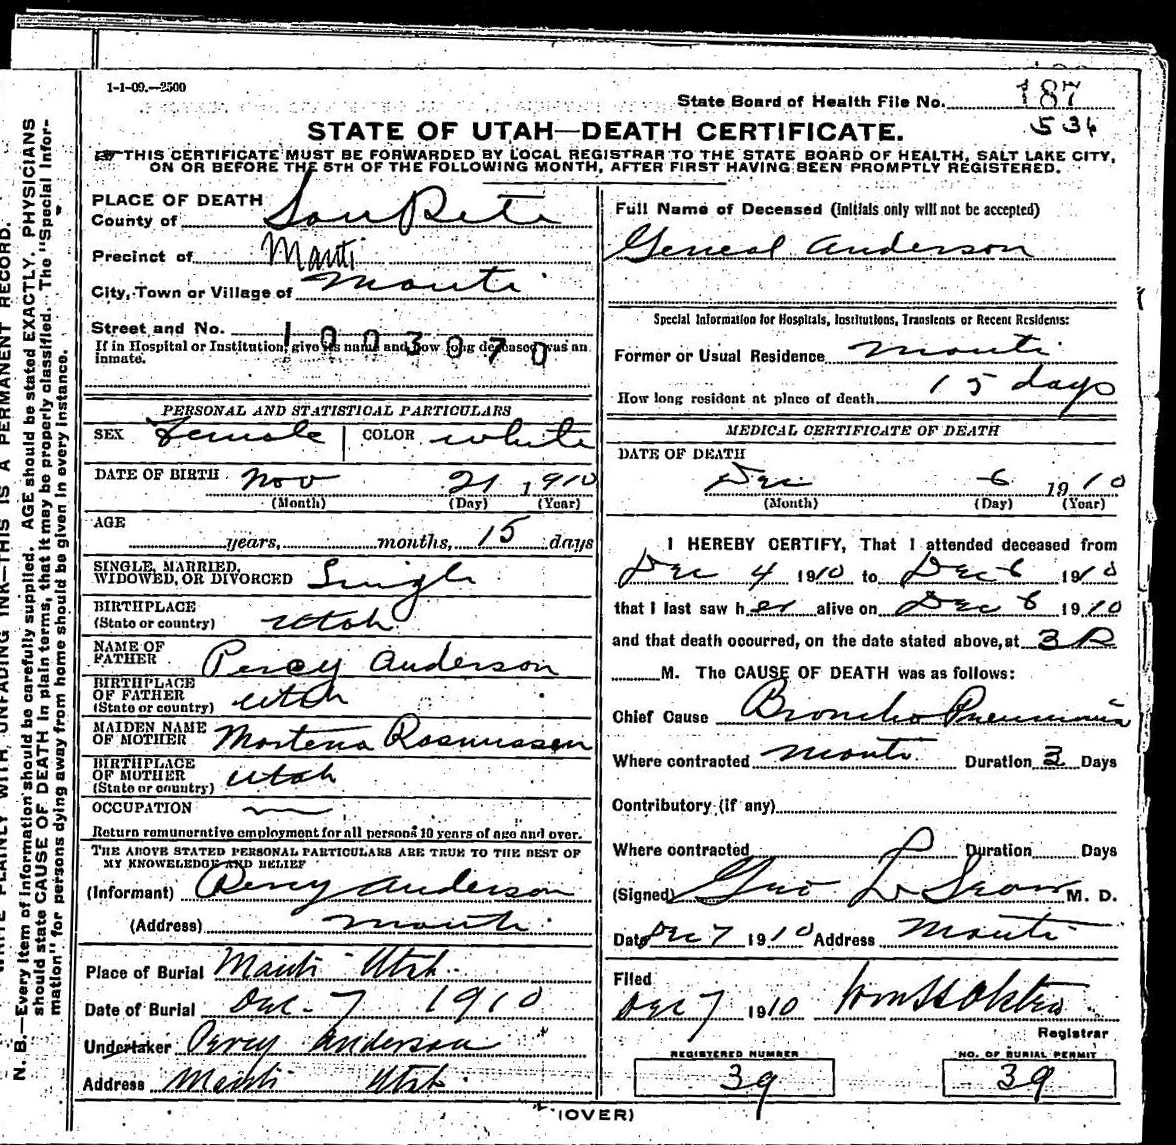 1-1-09.—2500
State Board of Health File No. 187
536
STATE OF UTAH—DEATH CERTIFICATE.
THIS CERTIFICATE MUST BE FORWARDED BY LOCAL REGISTRAR TO THE STATE BOARD OF HEALTH, SALT LAKE CITY,
ON OR BEFORE THE 5TH OF THE FOLLOWING MONTH, AFTER FIRST HAVING BEEN PROMPTLY REGISTERED.
PLACE OF DEATH
County of San Pete
Precinct of Manti
City, Town or Village of Manti
Street and No. 1003070
If in Hospital or Institution, give its name and how long deceased was an
inmate.
PERSONAL AND STATISTICAL PARTICULARS
SEX Female COLOR white
DATE OF BIRTH Nov 21 1910
(Month) (Day) (Year)
AGE
years, months, 15 days
SINGLE, MARRIED,
WIDOWED, OR DIVORCED Single
BIRTHPLACE
(State or country) Utah
NAME OF
FATHER Percy Anderson
BIRTHPLACE
OF FATHER
(State or country) Utah
MAIDEN NAME
OF MOTHER Mortena Rasmussen
BIRTHPLACE
OF MOTHER
(State or country) Utah
OCCUPATION
Return remunerative employment for all persons 10 years of age and over.
THE ABOVE STATED PERSONAL PARTICULARS ARE TRUE TO THE BEST OF
MY KNOWLEDGE AND BELIEF
(Informant) Percy Anderson
(Address) Manti
Place of Burial Manti Utah.
Date of Burial Dec. 7 1910
Undertaker Percy Anderson
Address Manti Utah.
Full Name of Deceased (Initials only will not be accepted)
Geneal Anderson
Special Information for Hospitals, Institutions, Transients or Recent Residents:
Former or Usual Residence Manti
How long resident at place of death 15 days
MEDICAL CERTIFICATE OF DEATH
DATE OF DEATH
Dec 6 1910
(Month) (Day) (Year)
I HEREBY CERTIFY, That I attended deceased from
Dec 4 1910 to Dec 6 1910
that I last saw her alive on Dec 6 1910
and that death occurred, on the date stated above, at 3 P
M. The CAUSE OF DEATH was as follows:
Chief Cause Broncho Pneumonia
Where contracted Manti Duration 3 Days
Contributory (if any)
Where contracted Duration Days
(Signed) Geo L Snow M. D.
Date Dec 7 1910 Address Manti
Filed
Dec 7 1910
Registrar
REGISTERED NUMBER
39
NO. OF BURIAL PERMIT
39
(OVER)
N. B.—Every item of information should be carefully supplied. AGE should be stated EXACTLY. PHYSICIANS
should state CAUSE OF DEATH in plain terms, that it may be properly classified. The "Special Infor-
mation" for persons dying away from home should be given in every instance.
PLAINLY WITH UNFADING INK—THIS IS A PERMANENT RECORD.